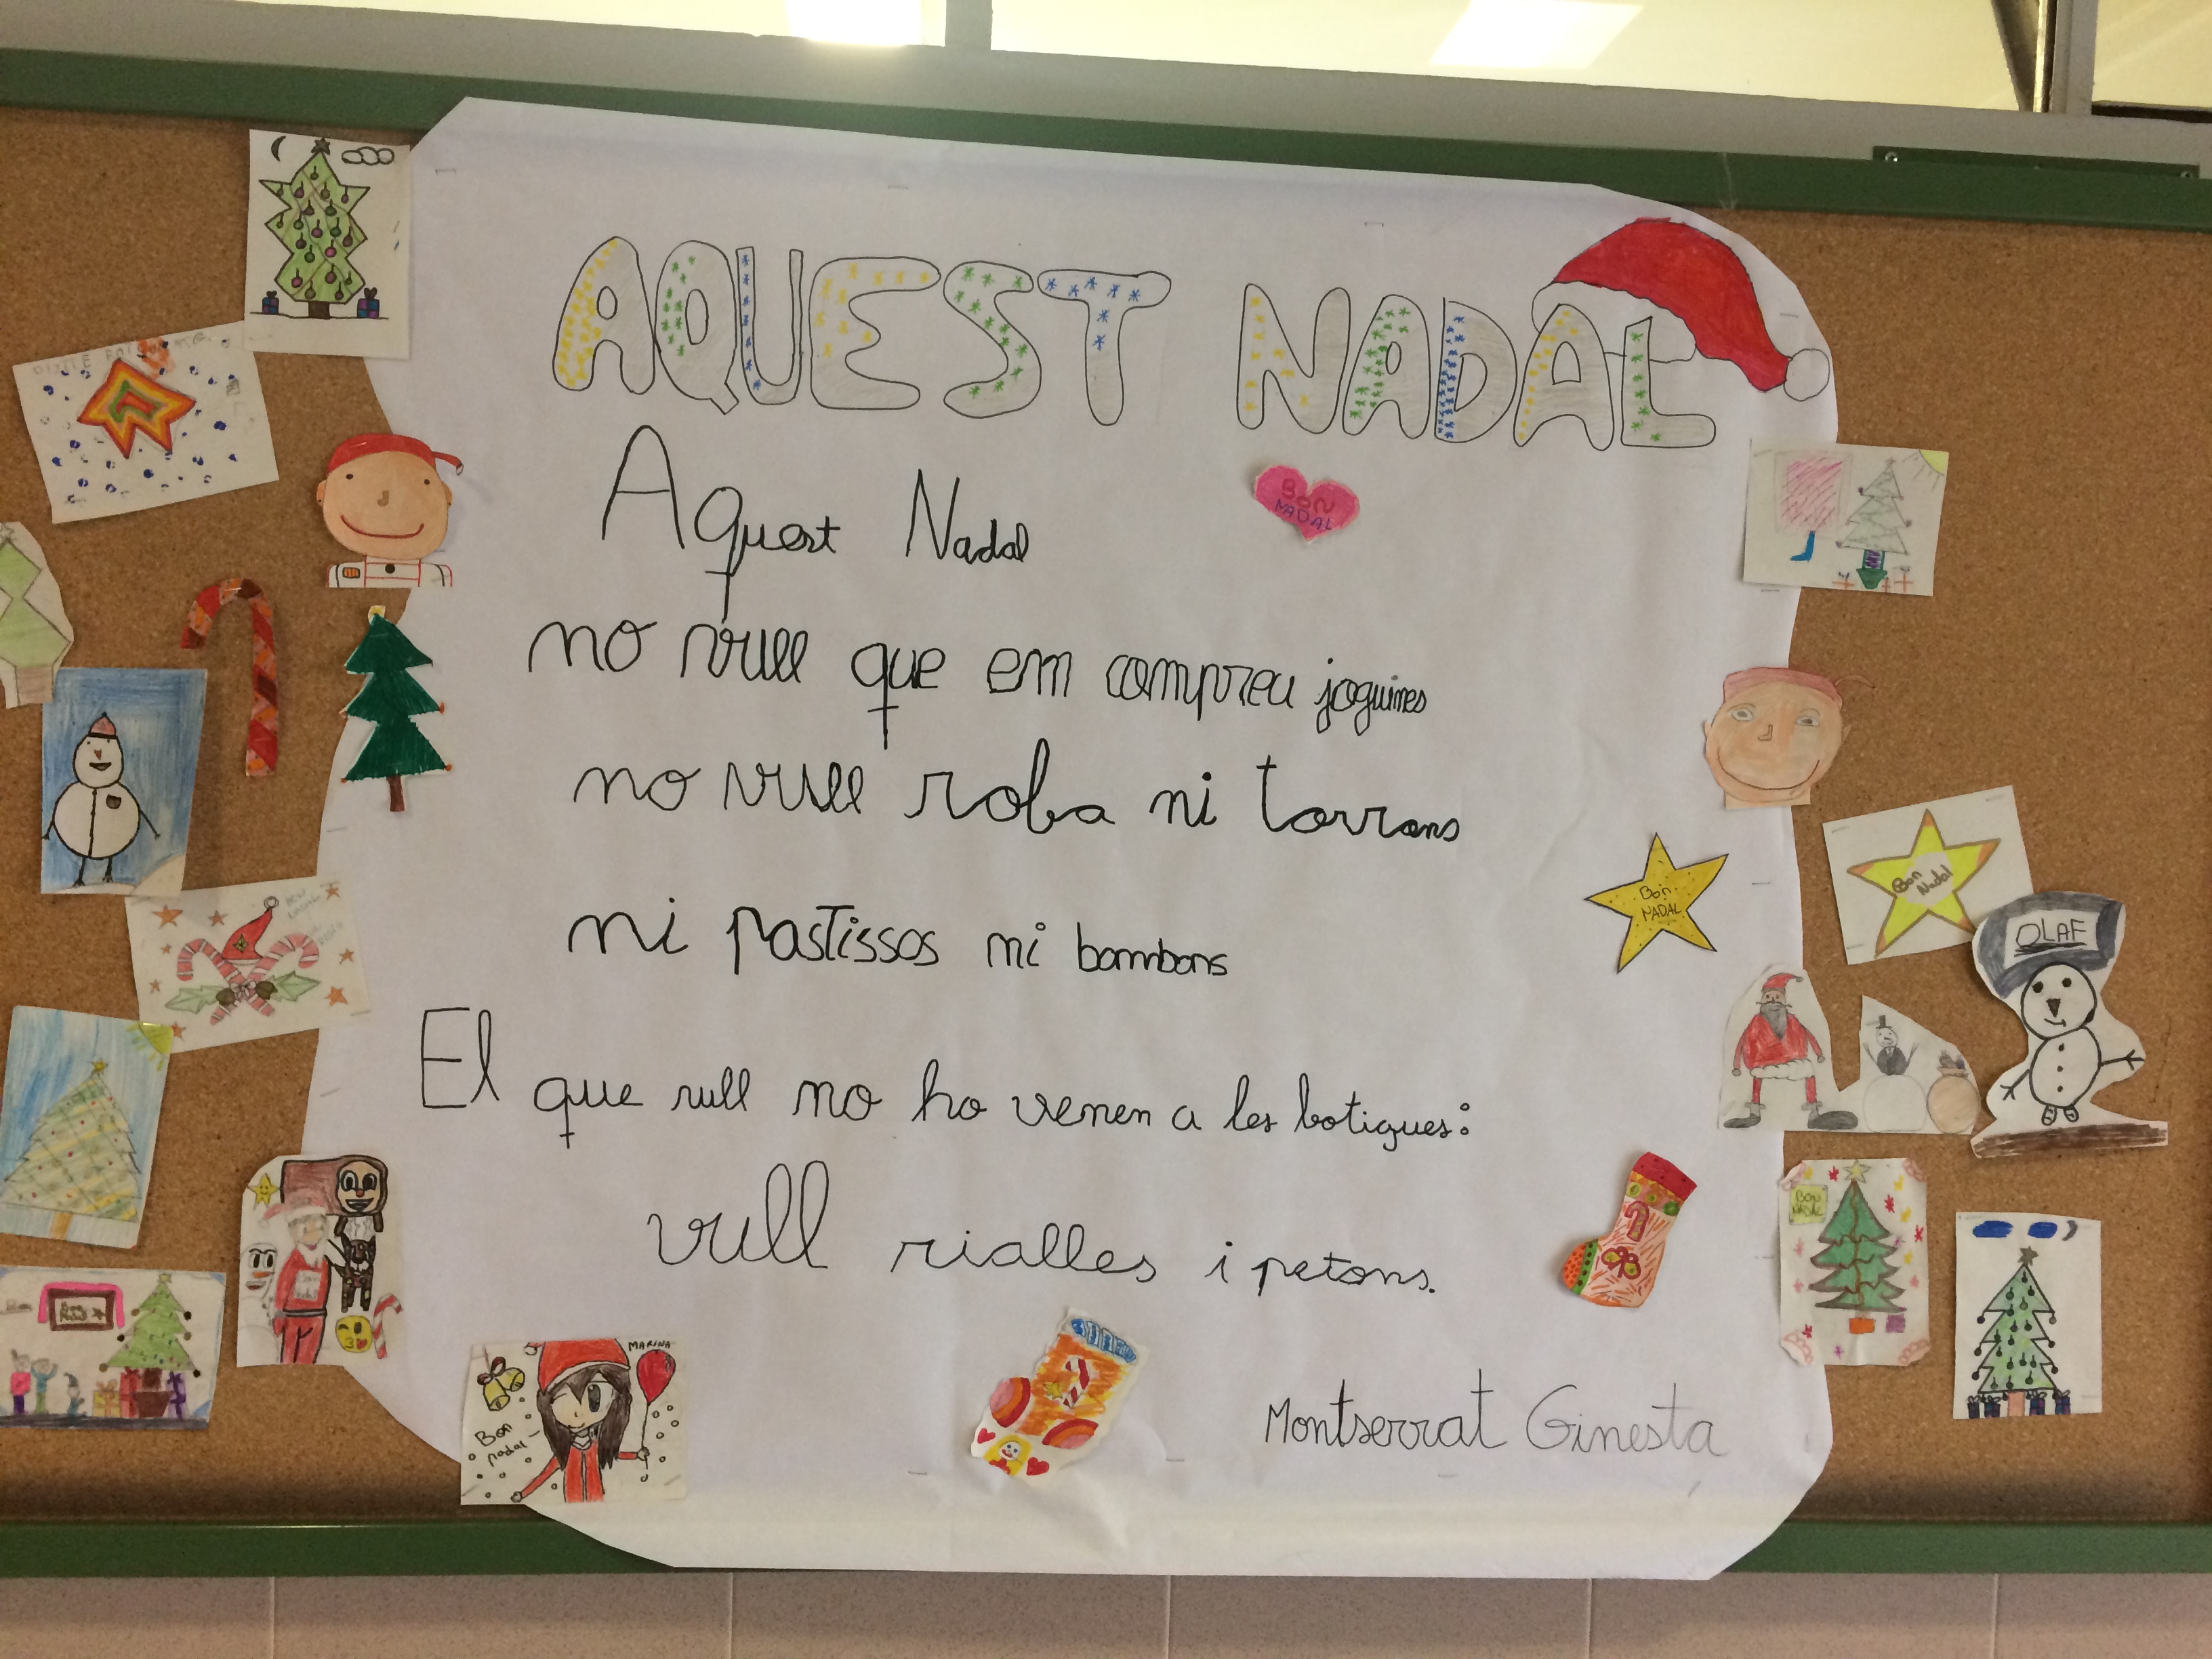 AQUEST NADAL
Aquest Nadal
no vull que em compreu joguines
no vull roba ni torrons
ni pastissos ni bombons
El que vull no ho venen a les botigues:
vull rialles i petons.
Montserrat Ginesta
BON
NADAL
Bon
NADAL
Bon
Nadal
OLAF
BON
NADAL
MARINA
Bon
nadal